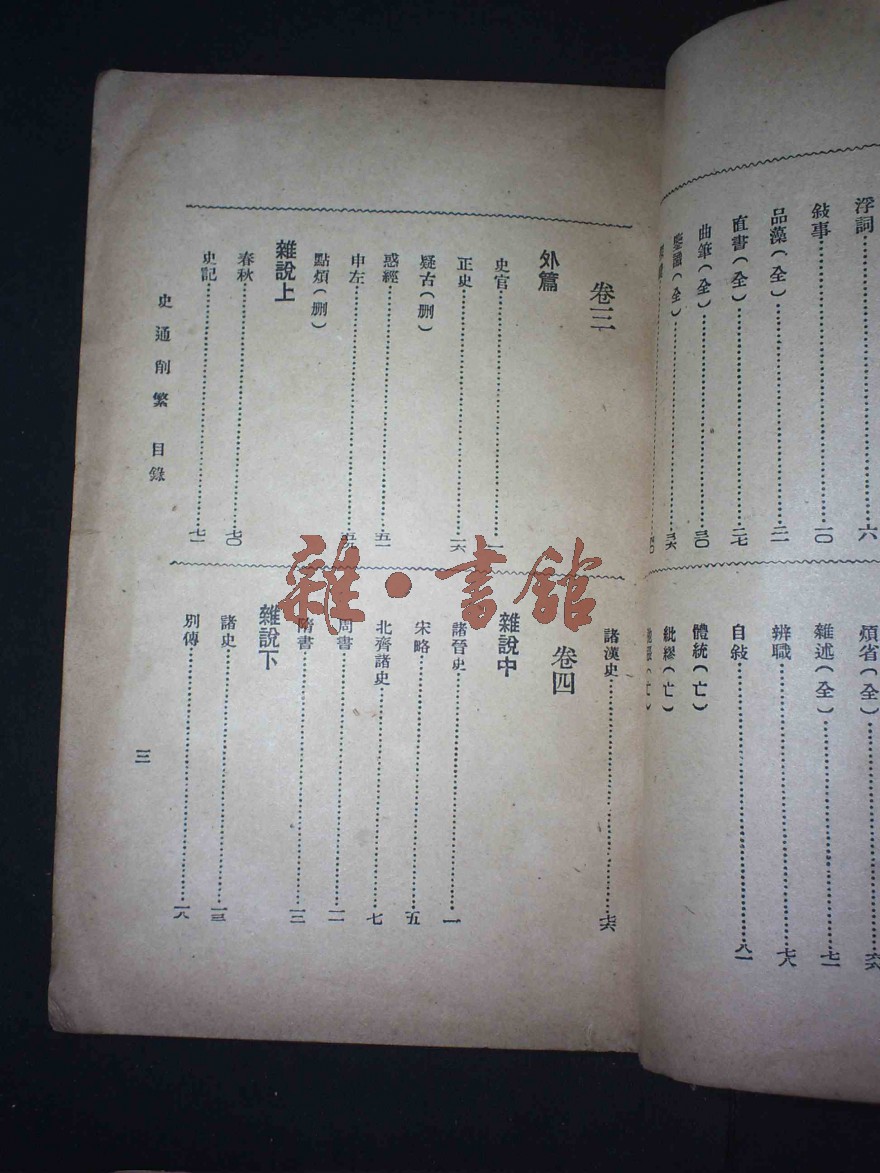 浮詞……六
敍事……一〇
品藻(全)……二一
直書(全)……二七
曲筆(全)……三〇
鑒識(全)……三六
煩省(全)
雜述(全)……七二
辨職……七八
自敍……八一
體統(亡)
紕繆(亡)
卷三
外篇
史官……一
正史
疑古(删)
惑經……五一
申左……五九
點煩(删)
雜說上
春秋……七〇
史記……七二
諸漢史……七六
卷四
雜說中
諸晉史……一
宋略……五
北齊諸史……七
周書
隋書
雜說下
諸史……一三
別傳……一八
史通削繁 目錄
三
雜·書館